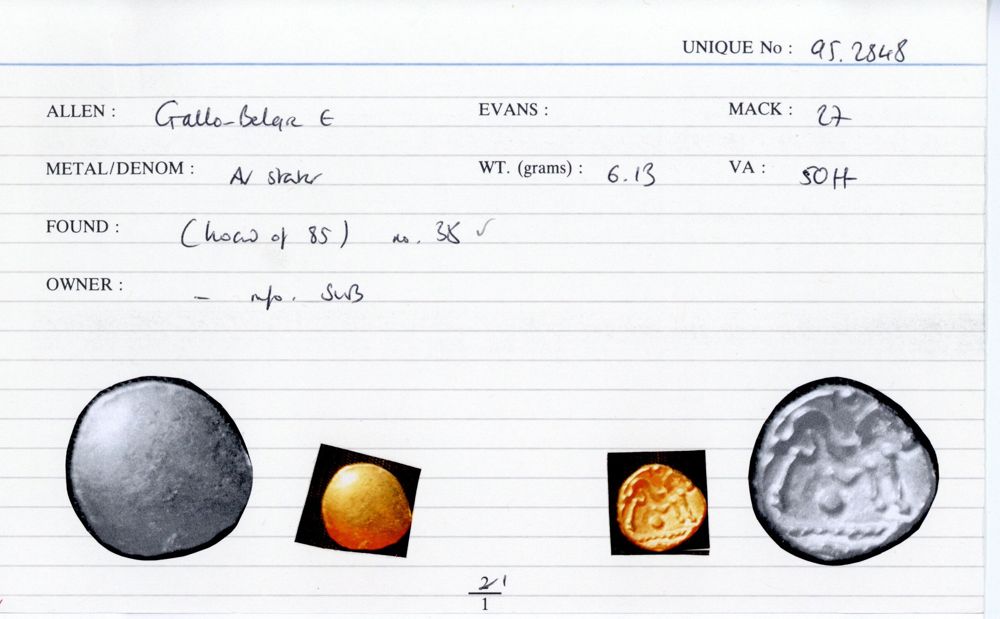 UNIQUE No : 95.2848
ALLEN : Gallo-Belgic E EVANS : MACK : 27
METAL/DENOM : AV stater WT. (grams) : 6.13 VA : 50ff
FOUND : (hoard of 85) no. 38 ✓
OWNER : -
21
1